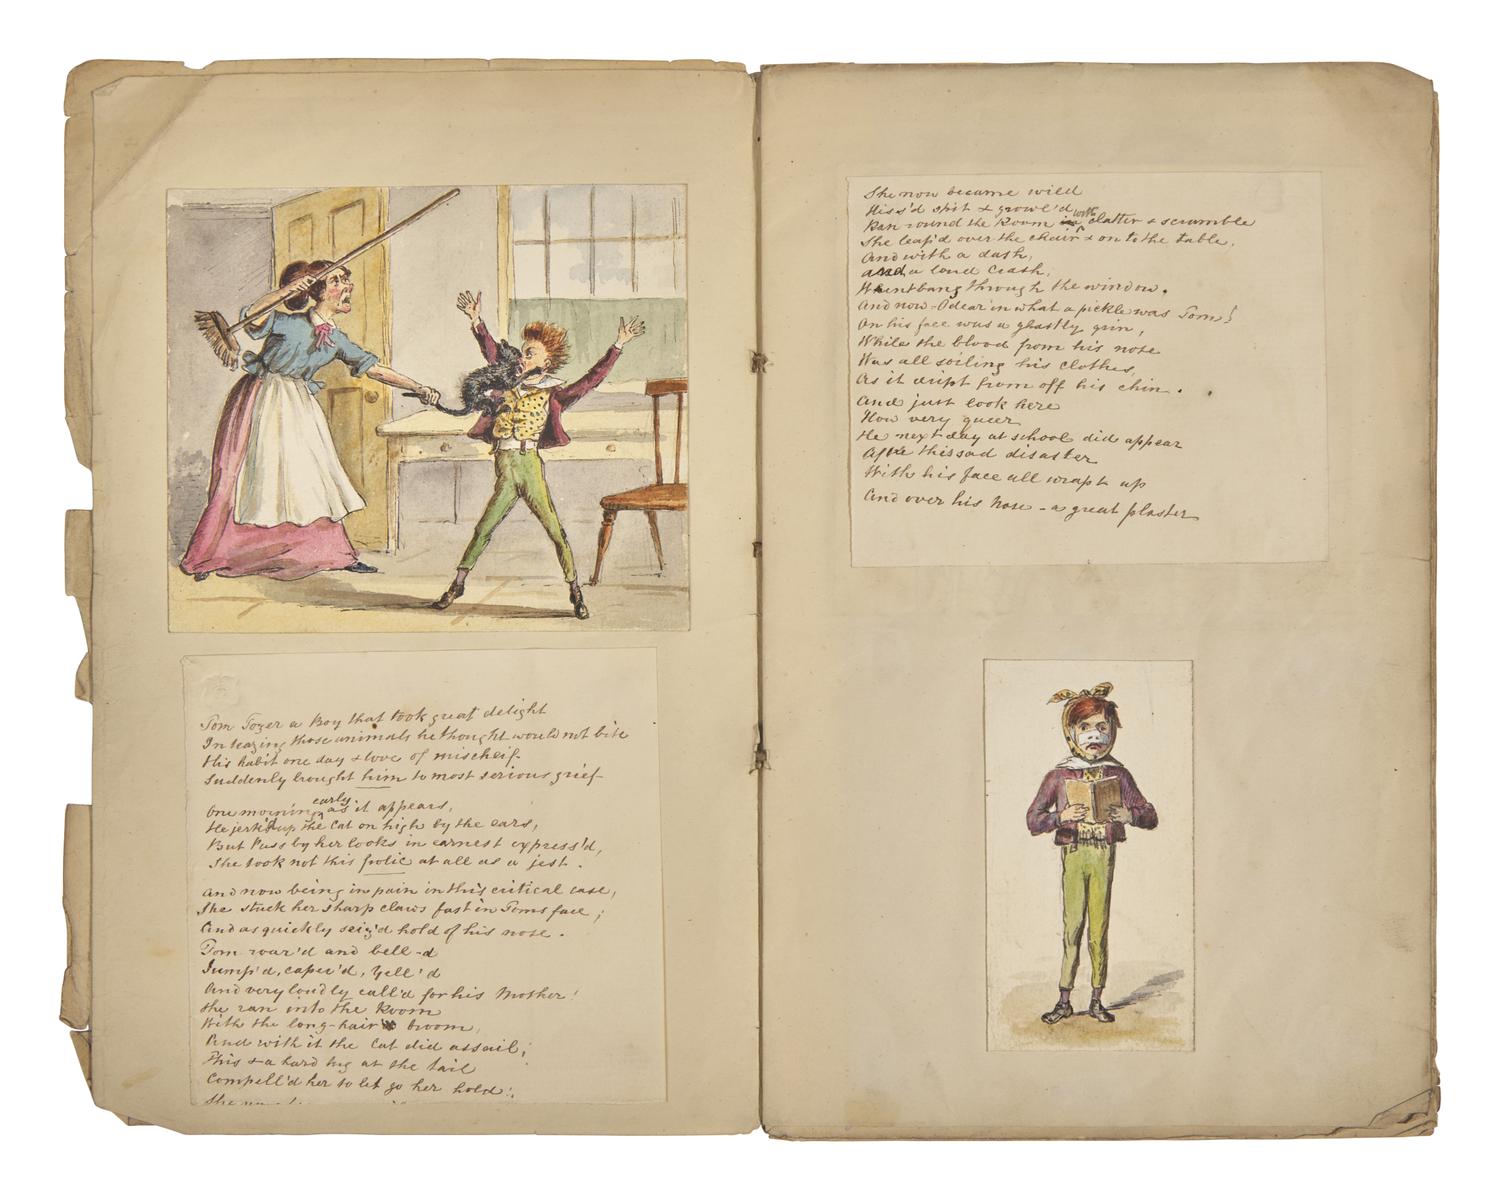 Tom Tozer a Boy that took great delight
In teazing those animals he thought would not bite
His habit one day & love of mischeif
Suddenly brought him to most serious grief
One morning early as it appears,
He jerk'd up the Cat on high by the ears,
But Puss by her looks in earnest express'd,
She took not this frolic at all as a jest.
And now being in pain in this critical case,
She stuck her sharp claws fast in Toms face;
And as quickly seiz'd hold of his nose.
Tom roar'd and bell-d
Jump'd, caper'd, yell'd
And very loudly call'd for his Mother!
She ran into the Room
With the long-hair broom,
And with it the Cat did assail;
This & a hard tug at the tail
Compell'd her to let go her hold!
She now became wild
Hiss'd spit & growl'd
Ran round the Room with clatter & scramble
She leap'd over the chair & on to the table,
And with a dash,
and a loud crash,
Went bang through the window.
And now - O dear in what a pickle was Tom!
On his face was a ghastly grin,
While the blood from his nose
Was all soiling his clothes,
As it dript from off his chin.
And just look here
How very queer
He next day at school did appear
After this sad disaster
With his face all wrapt up
And over his Nose - a great plaster